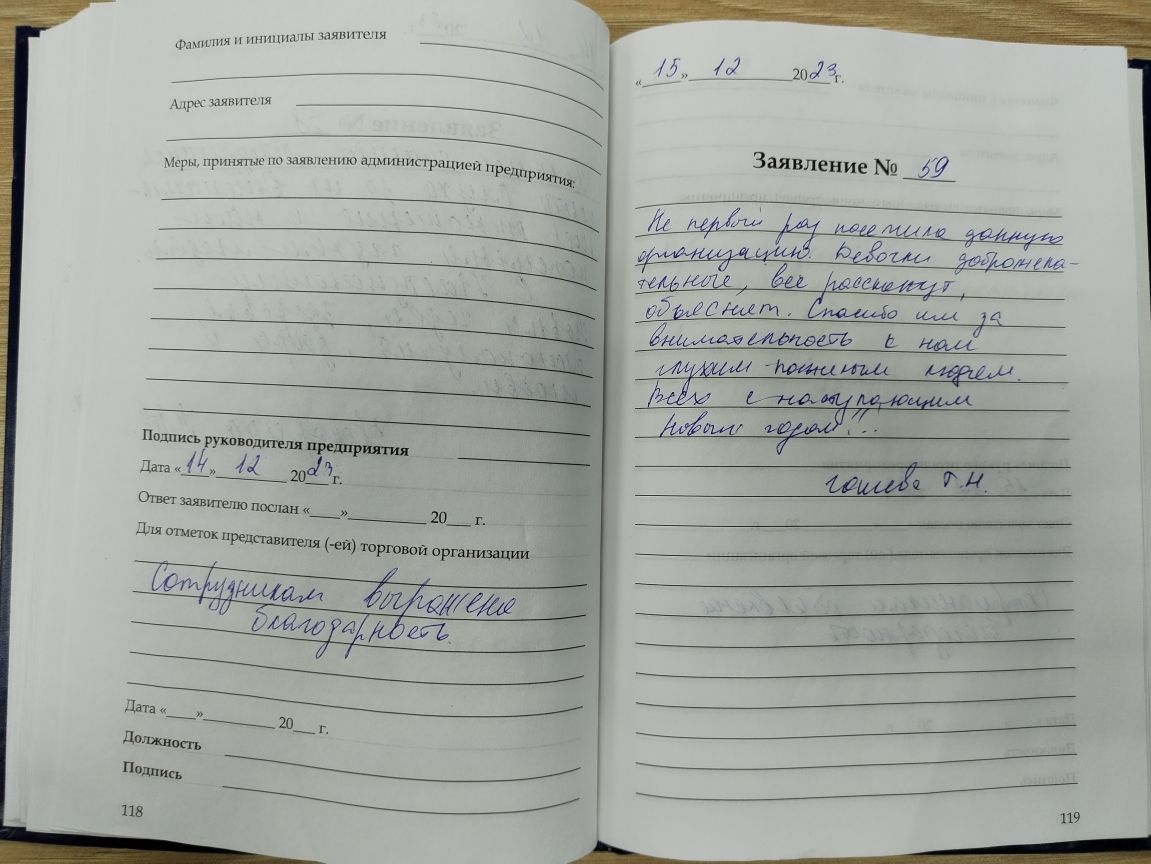 Фамилия и инициалы заявителя
Адрес заявителя
Меры, принятые по заявлению администрацией предприятия:
Подпись руководителя предприятия
Дата «14» 12 2023 г.
Ответ заявителю послан «____»__________ 20___ г.
Для отметок представителя (-ей) торговой организации
Сотрудникам выражена
благодарность.
Дата «____»__________ 20___ г.
Должность
Подпись
118
«15» 12 2023 г.
Заявление № 59
Не первый раз посетила данную
организацию. Девочки доброжела-
тельные, все расскажут,
объяснят. Спасибо им за
внимательность к нам
глухим пожилым людям.
Всех с наступающим
Новым годом!!...
Г.Н.
119